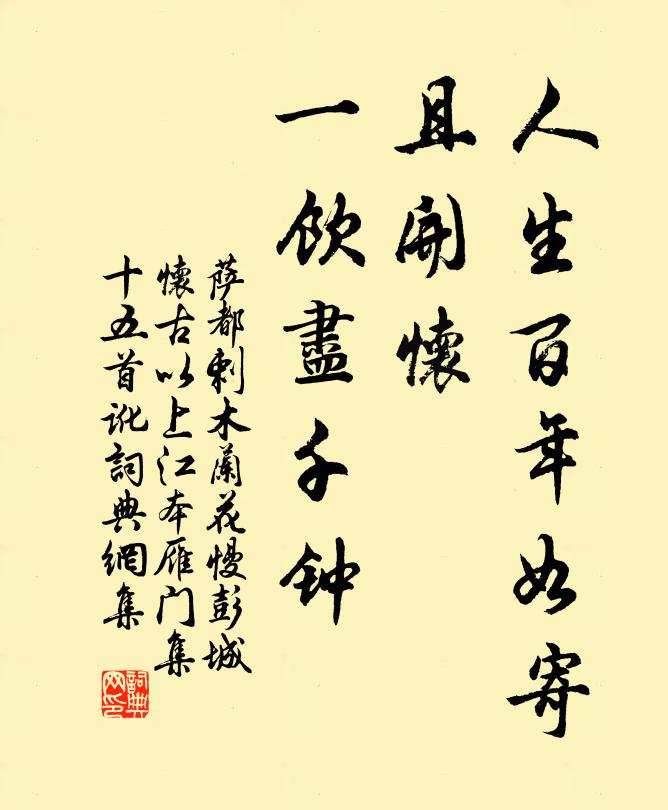 人生百年如寄
且開懷
一飲盡千钟
萨都剌木蘭花慢彭城
懷古以上江本雁门集
十五首訛詞典網集
詞典
网印